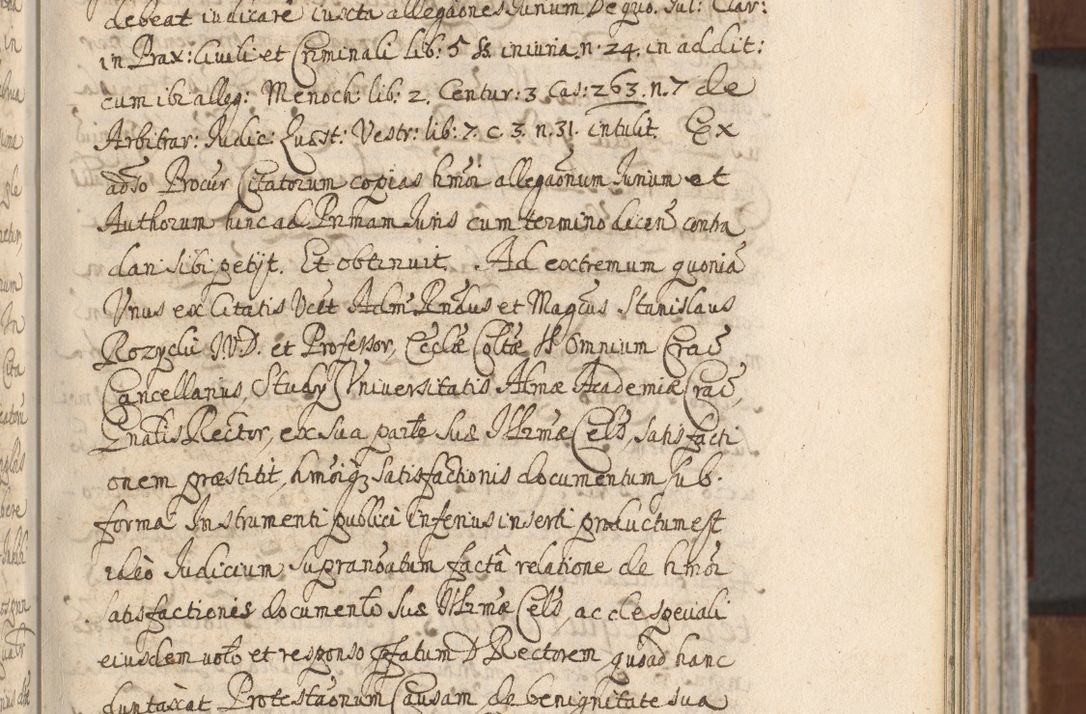 debeat iudicare iuxta allegaones Iurium De quo. Iul: Clar:
in Prax: Civili et Criminali lib: 5 §§. iniuria. n. 24. in addit:
cum ibi alleg: Menoch: lib: 2. Centur: 3 Cas: 263. n. 7 de
Arbitrar: Iudic: Quæst: Vestr: lib: 7. c. 3. n. 31. intulit. Ex
adso Procur Citatorum copias hmoi allegaonum Iurium et
Authorum hinc ad Primam Iuris cum termino dicen contra
dari sibi petijt. Et obtinuit. Ad extremum quonia
Unus ex Citatis Vcet Adm Rndus et Magcus Stanislaus
Rozycki IVD. et Professor, Ecclæ Coltæ SS Omnium Crac
Cancellarius, Study Universitatis Almæ Academiæ Crac,
Gnalis Rector, ex sua parte Suæ Illrmæ Cels, satisfacti
onem præstitit, hmoiqz satisfactionis documentum sub.
forma Instrumenti publici inferius inserti productum est
ideò Iudicium supranoatum factâ relatione de hmoi
satisfactionis documento Suæ Illrmæ Cels, ac de speciali
eiusdem voto et responso pfatum D Rectorem quoad hanc
duntaxat Protestaonum Causam de benignitate sua